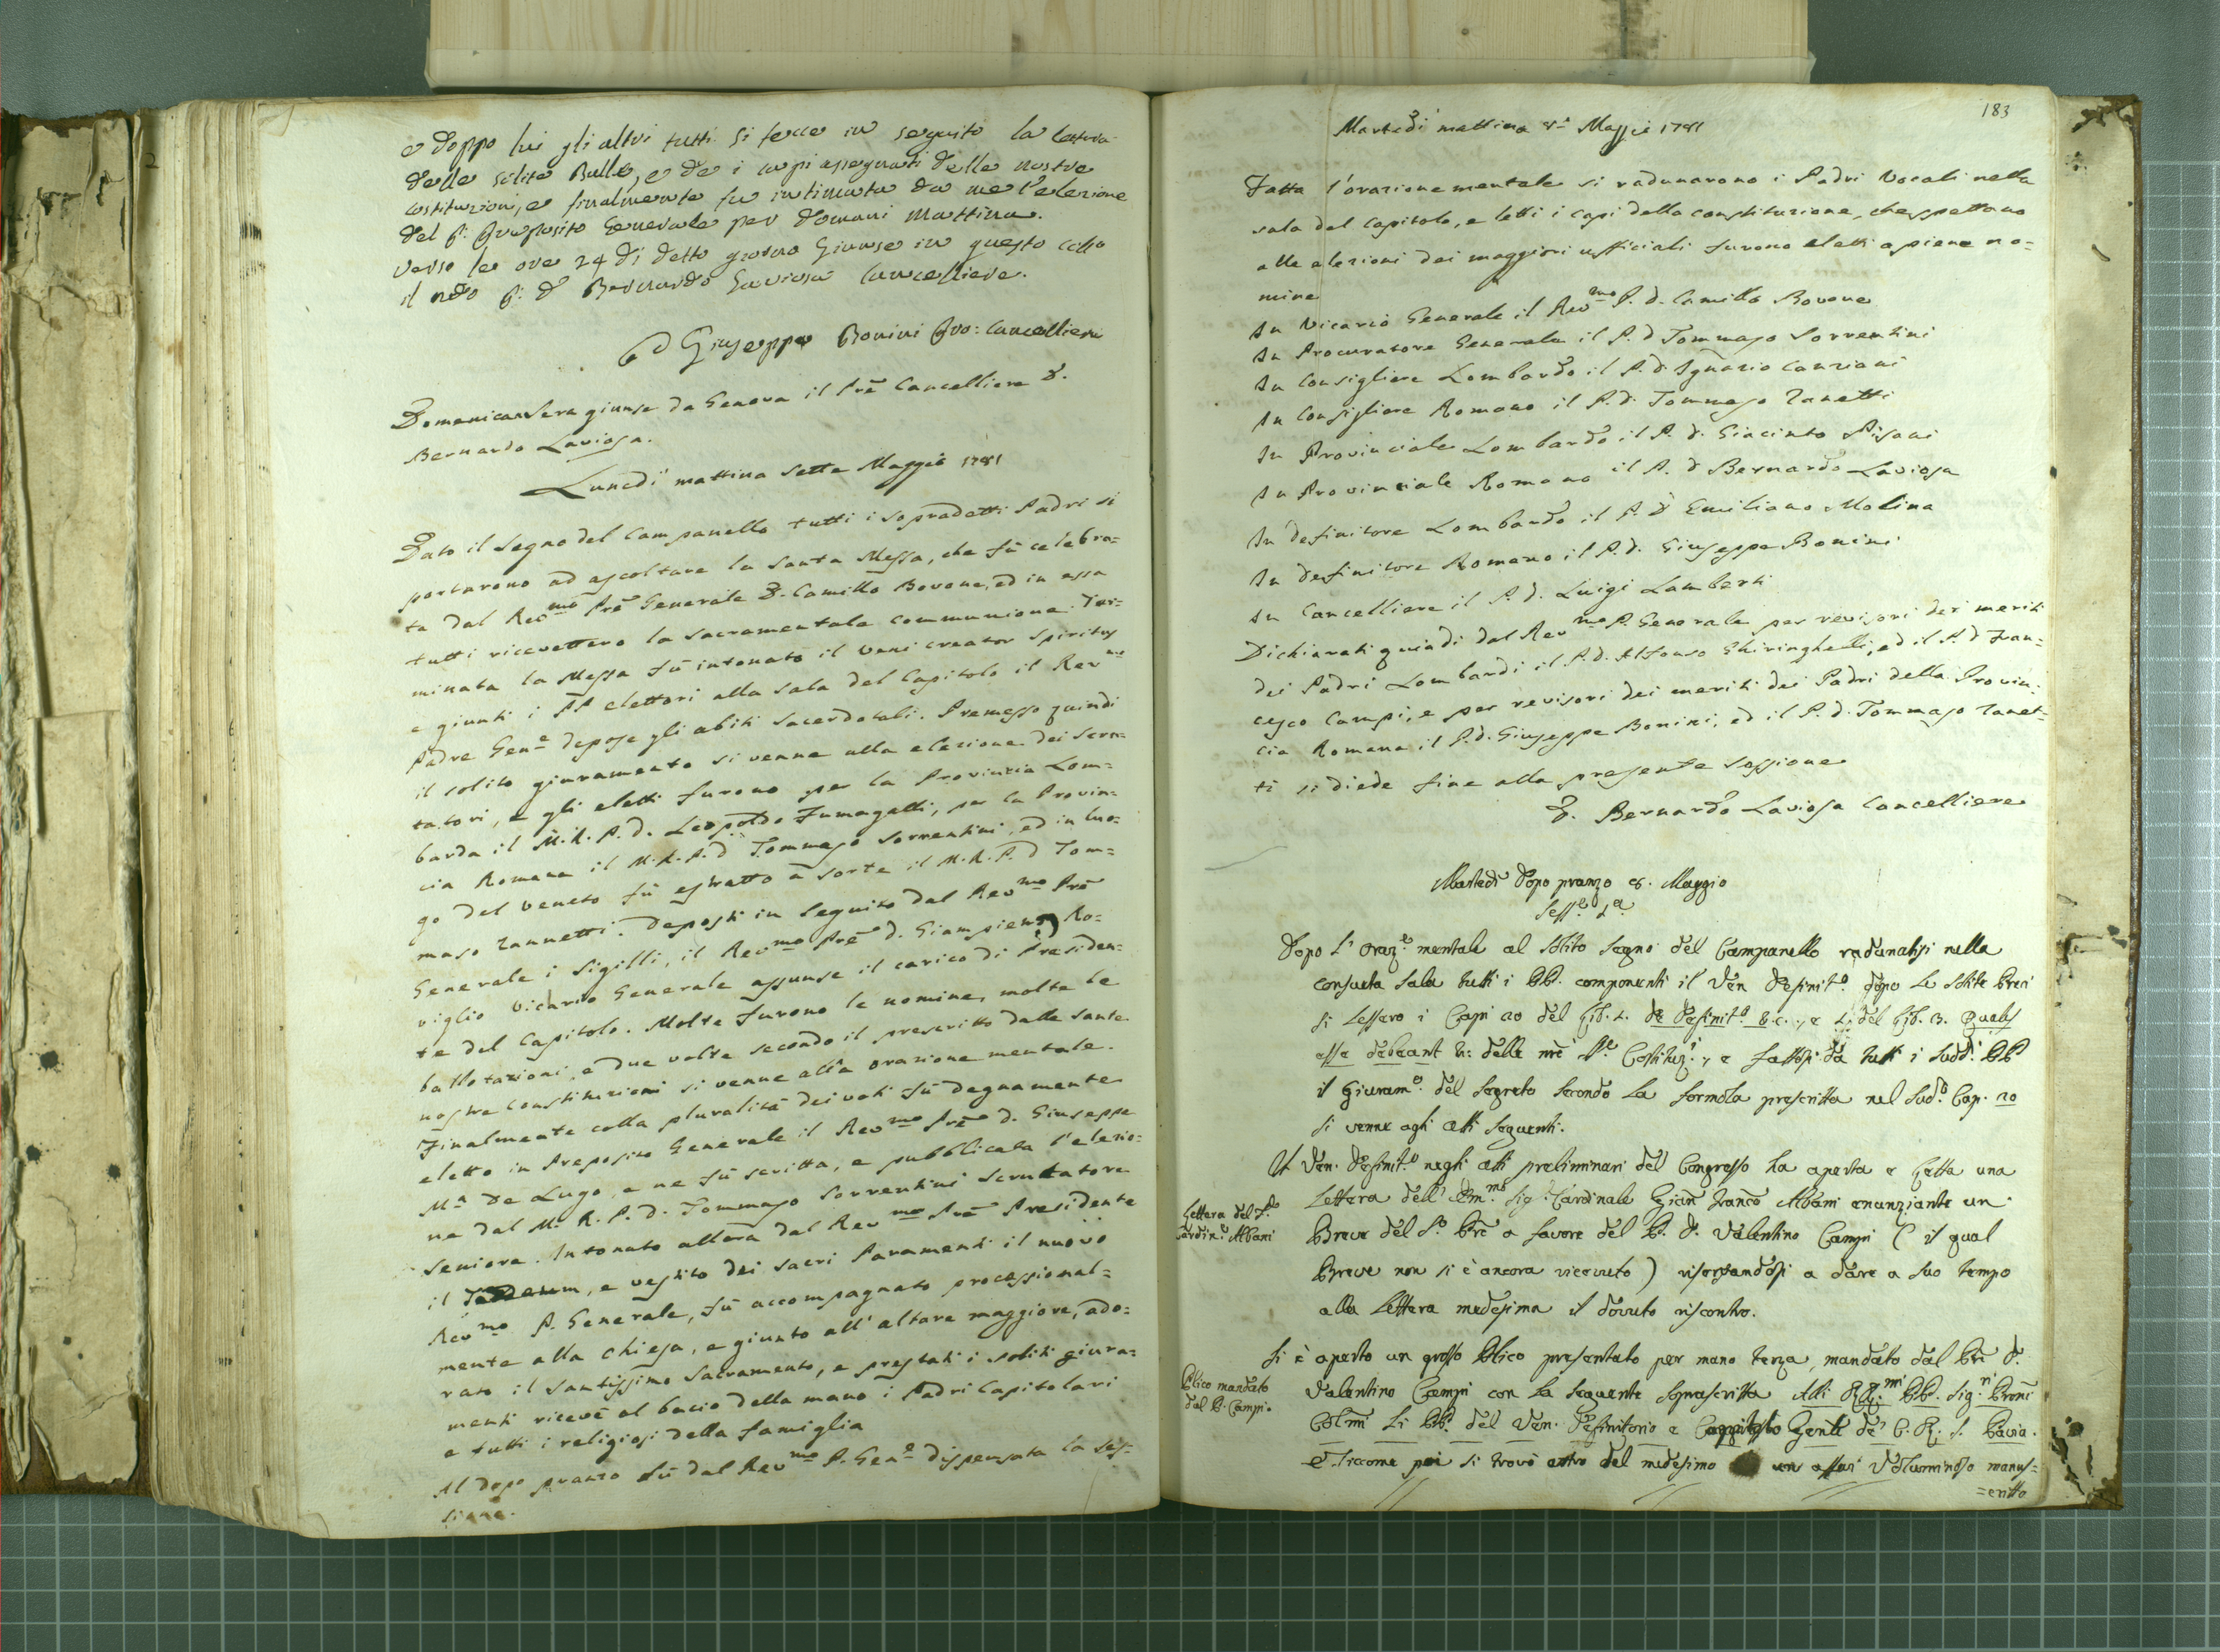 e doppo lui gli altri tutti si fecce in seguito la lettura
delle solite Bulle, e de i capi assegnati delle nostre
costituzioni, e finalmente fu intimata da me l'elezione
del P: Preposito Generale per domani Mattina.
Verso le ore 24 di detto giorno Giunse in questo
il P: D Bernardo Laviosa Cancelliere.
D Giuseppe Bonini Pro: Cancelliere
Domenica Sera giunse da Genova il Pre Cancelliere D.
Bernardo Laviosa.
Lunedì mattina Sette Maggio 1781
Dato il Segno del Campanello tutti i sopradetti Padri si
portarono ad ascoltare la Santa Messa, che fù celebra=
ta dal Rev.mo Prē Generale D. Camillo Bovone, ed in essa
tutti ricevettero la Sacramentale Communione. Ter=
minata la Messa fù intonato il Veni creator Spiritus
e giunti i PP elettori alla sala del Capitolo il Rev.mo
Padre Gen.e depose gli abiti Sacerdotali. Premesso quindi
il solito giuramento si venne alla elezione dei Scru=
tatori, e gli eletti furono per la Provincia Lom=
barda il M.R.P.D. Leopoldo Fumagalli, per la Provin=
cia Romana il M.R.P.D Tommaso Sorrentini, ed in luo=
go del Veneto fù estratto a sorte il M.R.P.D Tom=
maso Zannetti. Deposti in Seguito dal Rev.mo Prē
Generale i Sigilli, il Rev.mo Prē D. Giampiero Ro=
viglio Vicario Generale assunse il carico di Presiden=
te del Capitolo. Molte furono le nomine, molte le
ballotazioni, e due volte secondo il prescritto dalle Sante
nostre Constituzioni si venne alla orazione mentale.
Finalmente colla pluralità dei voti fù degnamente
eletto in Preposito Generale il Rev.mo Prē D. Giuseppe
M.a De Lugo, e ne fù scritta, e pubblicata l'elezio=
ne dal M. R. P. D. Tommaso Sorrentini Scrutatore
Seniore. Intonato allora dal Rev.mo Prē Presidente
il Te Deum, e vestito dei sacri Paramenti il nuovo
Rev.mo P. Generale, fù accompagnato processional=
mente alla Chiesa, e giunto all'altare maggiore, ado=
rato il Santissimo Sacramento, e prestati i soliti giura=
menti ricevè al bacio della mano i Padri Capitolari
e tutti i religiosi della famiglia
Al dopo pranzo fù dal Rev.mo P. Gen.e dispensata la ses=
sione.
183
Martedì mattina 8 Maggio 1781
Fatta l'orazione mentale si radunarono i Padri Vocali nella
sala del Capitolo, e letti i capi della constituzione, che spettano
alle elezioni dei maggiori ufficiali furono eletti a piene no=
mine
In Vicario Generale il Rev.mo P. D. Camillo Bovone
In Procuratore Generale il P. D Tommaso Sorrentini
In Consigliere Lombardo il P. D. Ignazio Canziani
In Consigliere Romano il P. D. Tommaso Zanetti
In Provinciale Lombardo il P. D. Giacinto Pisani
In Provinciale Romano il P. D Bernardo Laviosa
In Definitore Lombardo il P. D Emiliano Molina
In Definitore Romano il P. D. Giuseppe Bonini
In Cancelliere il P. D. Luigi Lamberti
Dichiarati quindi dal Rev.mo P. Generale per revisori dei meriti
dei Padri Lombardi il P. D. Alfonso Ghiringhelli, ed il P. D Fran=
cesco Campi, e per revisori dei meriti dei Padri della Provin=
cia Romana il P. D. Giuseppe Bonini, ed il P. D. Tommaso Zanet=
ti si diede fine alla presente sessione
D. Bernardo Laviosa Cancelliere
Martedì dopo pranzo 8. Maggio
Sess.e 1.a
Dopo l'oraz.e mentale al solito segno del Campanello radunatisi nella
consueta Sala tutti i PP. componenti il Ven Definit.o dopo le solite Preci
si lessero i Capi 20 del Lib. 1. de Definit.o &c., e 1. del Lib. 3. Quales
esse debeant &: delle nrē Costituz.i, e fattosi da tutti i Sudd.i PP
il Giuram.o del Segreto secondo la formola prescritta nel Sud.o Cap. 20
si venne agli atti Seguenti.
Il Ven. Definit.o negli atti preliminari del Congresso ha aperta e letta una
Lettera dell'Em.mo Sig.r Cardinale Gian Franco Albani anunziante un
Breve del S. Prē a favore del P. D. Valentino Campi ( il qual
Breve non si è ancora ricevuto ) riserbandosi a dare a suo tempo
alla Lettera medesima il dovuto riscontro.
Lettera del S.r
Cardin.e Albani
Si è aperto un grosso Plico presentato per mano terza, mandato dal Prē D.
Valentino Campi con la seguente soprascritta Alli RR.mi PP. Sig.ri Proni
Colmi Li PP. del Ven. Definitorio e Capitolo Genle de' C. R. S. Pavia.
E siccome poi si trovò entro del medesimo un assai voluminoso manus=
=critto
Plico mandato
dal P. Campi.